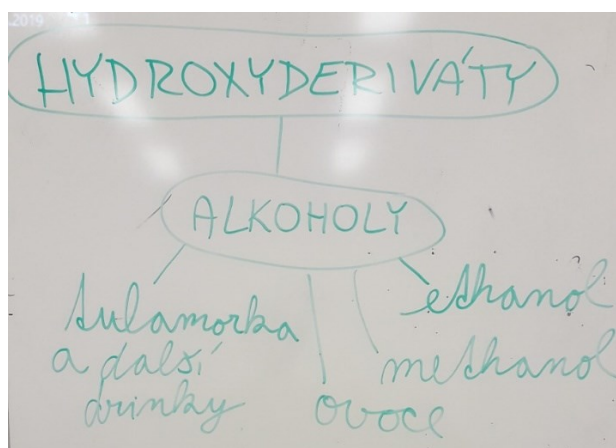 HYDROXYDERIVÁTY
ALKOHOLY
tulamorka
a další
drinky
ovoce
methanol
ethanol